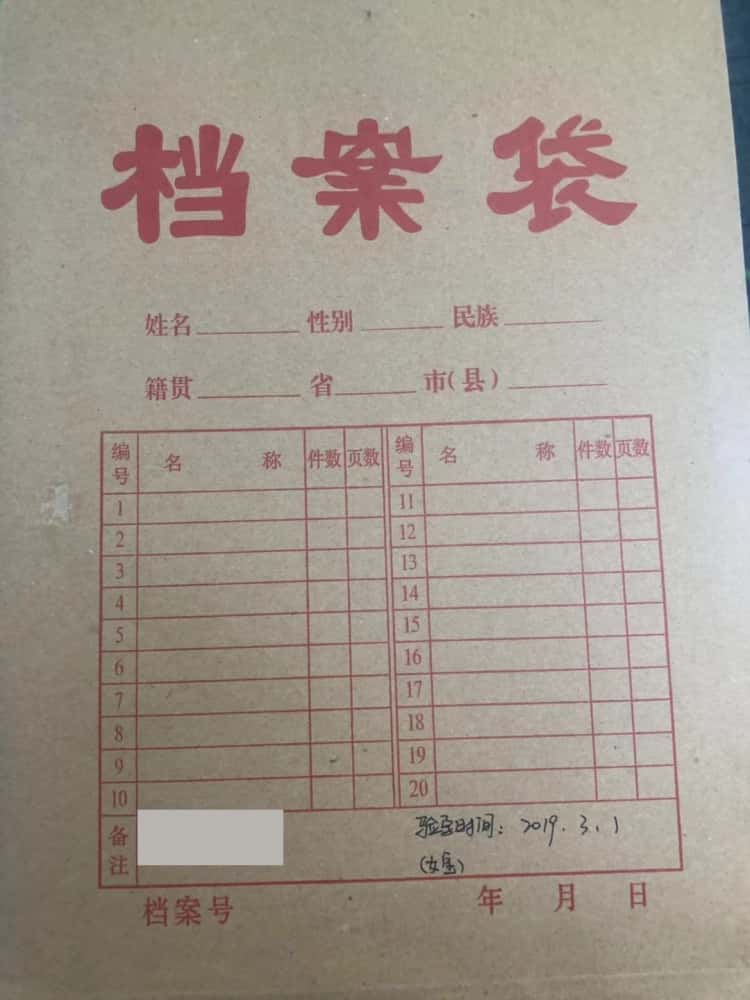 档案袋
姓名 性别 民族
籍贯 省 市(县)
编号 名称 件数 页数 编号 名称 件数 页数
1 11
2 12
3 13
4 14
5 15
6 16
7 17
8 18
9 19
10 20
备注 时间: 2019.3.1
档案号 年 月 日